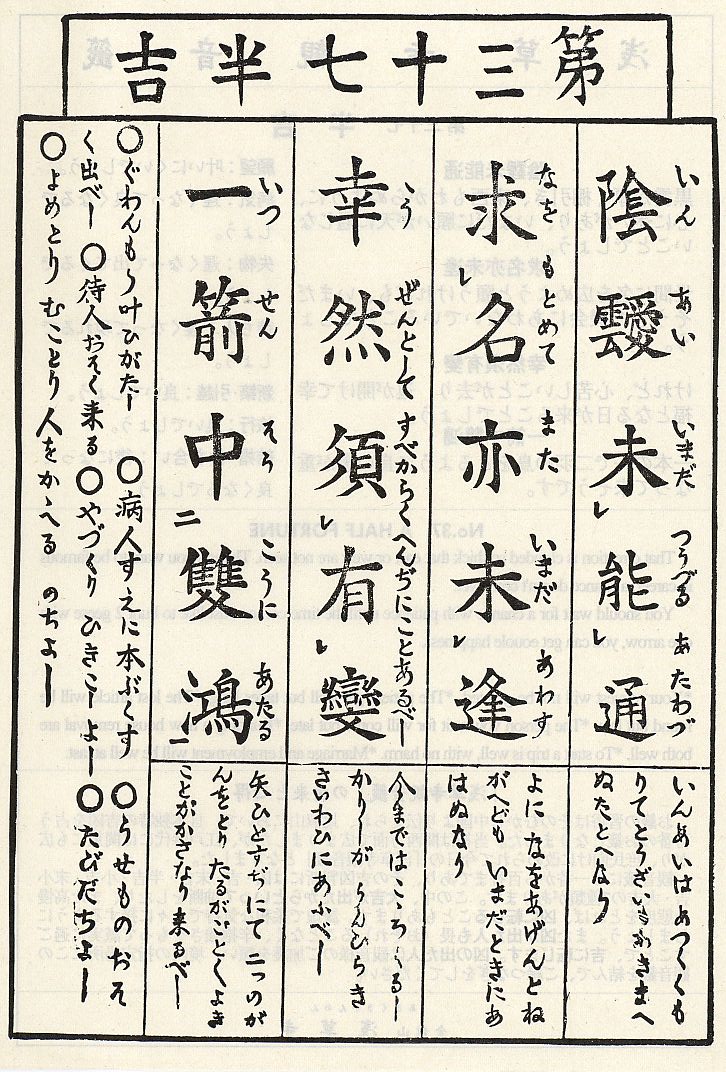 第三十七半吉
陰靉未レ能レ通
いん あい いまだ つうづる あたわづ
いんあいはあつくくも
りてとうざいきかきまへ
ぬたとへなり
求レ名亦未レ逢
なを もとめて また いまだ あわず
よに なをあげんとね
がへども いまだときにあ
はぬなり
幸然須レ有レ變
こう ぜんとして すべからくへんぢことあるべし
今まではこころくるし
かりしがうんひらき
さいわひにあふべし
一箭中二雙鴻一
いつ せん そう こうに あたる
矢ひとすぢにて二つのが
んをとりたるがごとくよき
ことがかさなり来るべし
○ぐわんもう叶ひがたし ○病人すえに本ぶくす ○うせものおそ
く出べし ○待人おそく来る ○やづくりひきこしよし ○たびだちよし
○よめとりむことり人をかゝへる のちよし